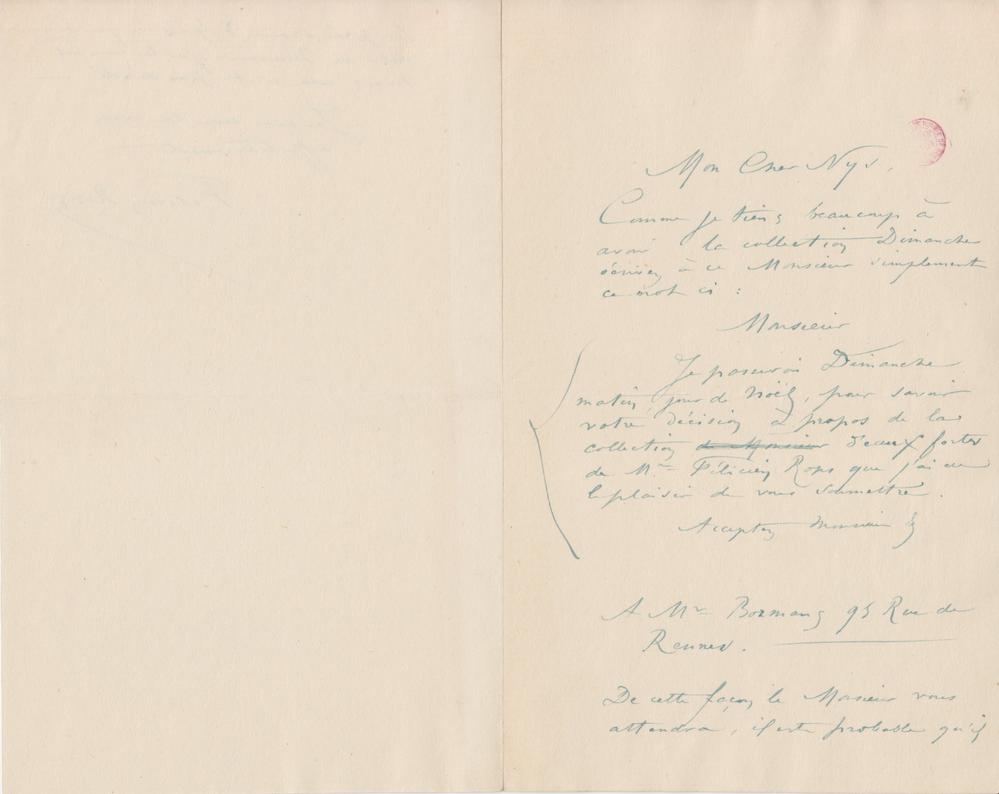 Mon Cher Nys,
Comme je tiens beaucoup à
avoir la collection Dimanche
écrivez à ce Monsieur simplement
ce mot ci :
Monsieur
Je passerai Dimanche
matin, jour de Noël, pour savoir
votre décision à propos de la
collection de Monsieur d'eaux fortes
de Mr Félicien Rops que j'ai eu
le plaisir de vous soumettre.
Acceptez Monsieur
A Mr Bormans 95 Rue de
Rennes.
De cette façon le Monsieur vous
attendra, il est probable qu'il